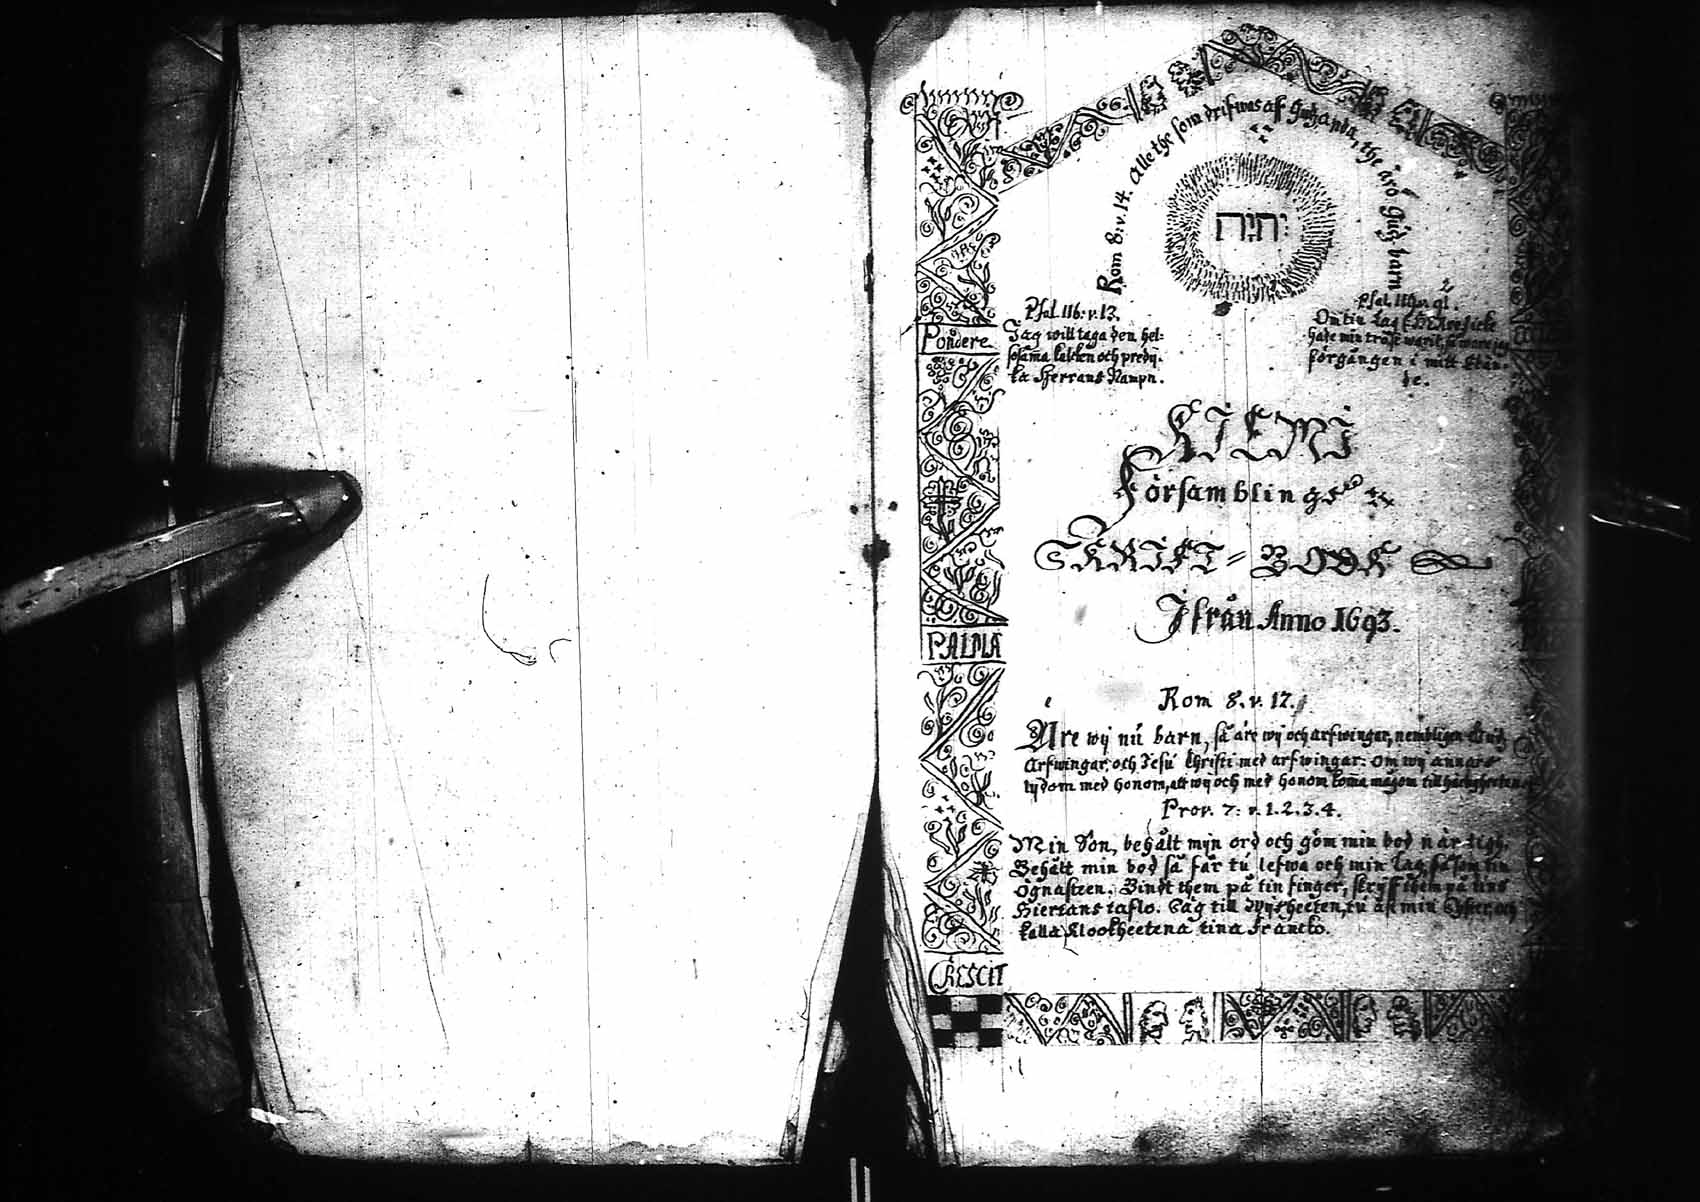 Rom 8. v. 14. Alle the som drifwas aff Gudz anda, the äro Gudz barn
יהוה
Psal. 116: v. 13.
Jag will taga den hel-
sosama kalken och predi-
ka Herrans Nampn.
Om tin Lag
hade min tröst warit, så wore jag
förgången i mitt Elän-
de.
Pondere
KIEMI
Församblings
SKRIFT=BOOK
Ifrån Anno 1693.
PALMA
Rom 8. v. 17.
Äre wij nú barn, så äre wij och arfwingar, nembligen Gudz
Arfwingar, och Jesú Christi med arfwingar: om wij annars
lijdom med honom, att wij och med honom komma mågom till härligheeten
Prov. 7: v. 1. 2. 3. 4.
Min Son, behålt mijn ord och göm min bod när tigh.
Behålt min bod så får tú lefwa och min Lag, såsom tin
ögnasteen. Bindt them på tin finger, skrijf them på tins
Hiertans taflo. Säg till Wijsheeten, tú äst min Syster, och
kalla Klookheetena tina Fränko.
CRESCIT